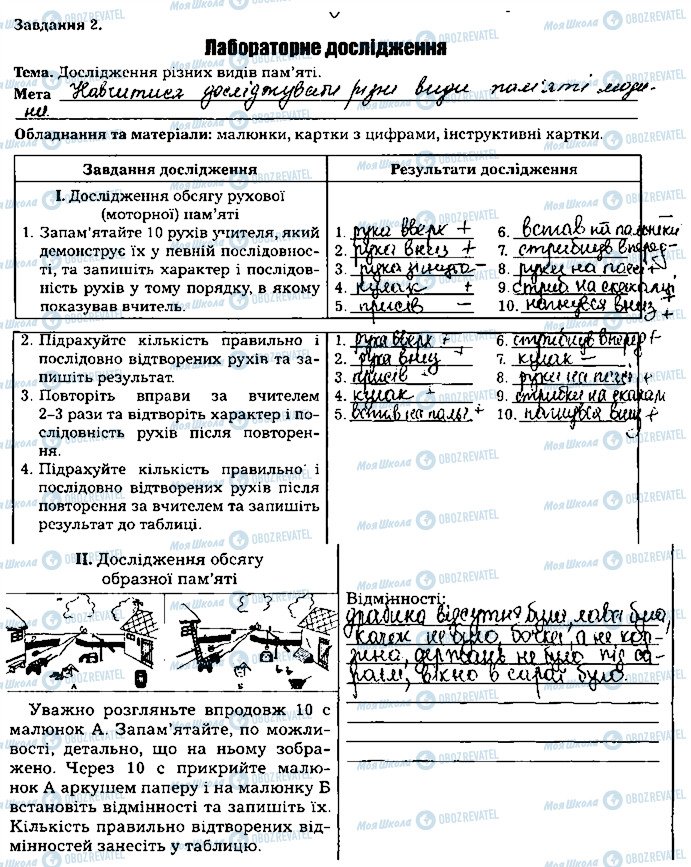 Завдання 2.
Лабораторне дослідження
Тема. Дослідження різних видів пам'яті.
Мета Навчитися досліджувати різні види пам'яті люди-
ни.
Обладнання та матеріали: малюнки, картки з цифрами, інструктивні картки.
Завдання дослідження
Результати дослідження
I. Дослідження обсягу рухової
(моторної) пам'яті
1. Запам'ятайте 10 рухів учителя, який
демонструє їх у певній послідовнос-
ті, та запишіть характер і послідов-
ність рухів у тому порядку, в якому
показував вчитель.
1. рука вверх +
2. рука вниз +
3. рука
4. кулак +
5. присів −
6. встав на пальчики
7. стрибнув вперед
8. руки на пояс +
9. стриб на скакалці
10. нагнувся вниз +
2. Підрахуйте кількість правильно і
послідовно відтворених рухів та за-
пишіть результат.
3. Повторіть вправи за вчителем
2–3 рази та відтворіть характер і по-
слідовність рухів після повторен-
ня.
4. Підрахуйте кількість правильно і
послідовно відтворених рухів після
повторення за вчителем та запишіть
результат до таблиці.
1. рука вверх +
2. рука вниз +
3. присів +
4. кулак +
5. встав на пальч +
6. стрибнув вперед +
7. кулак −
8. руки на пояс +
9. стрибки на скакал
10. нагнувся вниз +
II. Дослідження обсягу
образної пам'яті
А
Б
Уважно розгляньте впродовж 10 с
малюнок А. Запам'ятайте, по можли-
вості, детально, що на ньому зобра-
жено. Через 10 с прикрийте малю-
нок А аркушем паперу і на малюнку Б
встановіть відмінності та запишіть їх.
Кількість правильно відтворених від-
мінностей занесіть у таблицю.
Відмінності:
драбина відсутня була, лава була,
качок не було, бочка, а не кор-
зина, не було під са-
раєм, вікно в сараї було.
Моя Школа OBOZREVATEL